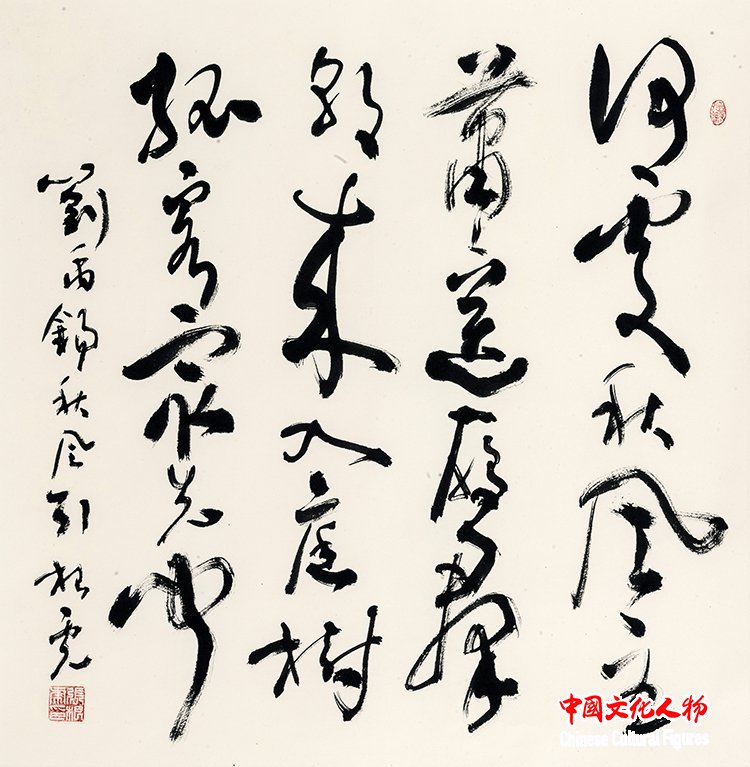 何處秋風至
蕭〻送雁羣
朝來入庭樹
孤客最先聞
劉禹錫秋風引 根虎
中國文化人物
Chinese Cultural Figures